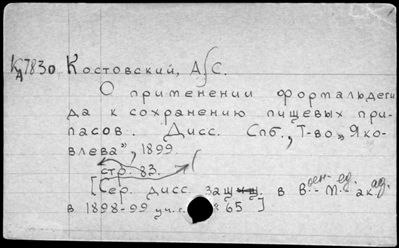 КА 7830 Костовский, А. С.
О применении формальдеги
да к сохранению пищевых при-
пасов. Дисс. Спб., Т-во „Яко-
влева”, 1899
стр. 83.
[Сер. дисс. защ. в Воен-Мед. акад.
в 1898-99 уч. г. № 65]